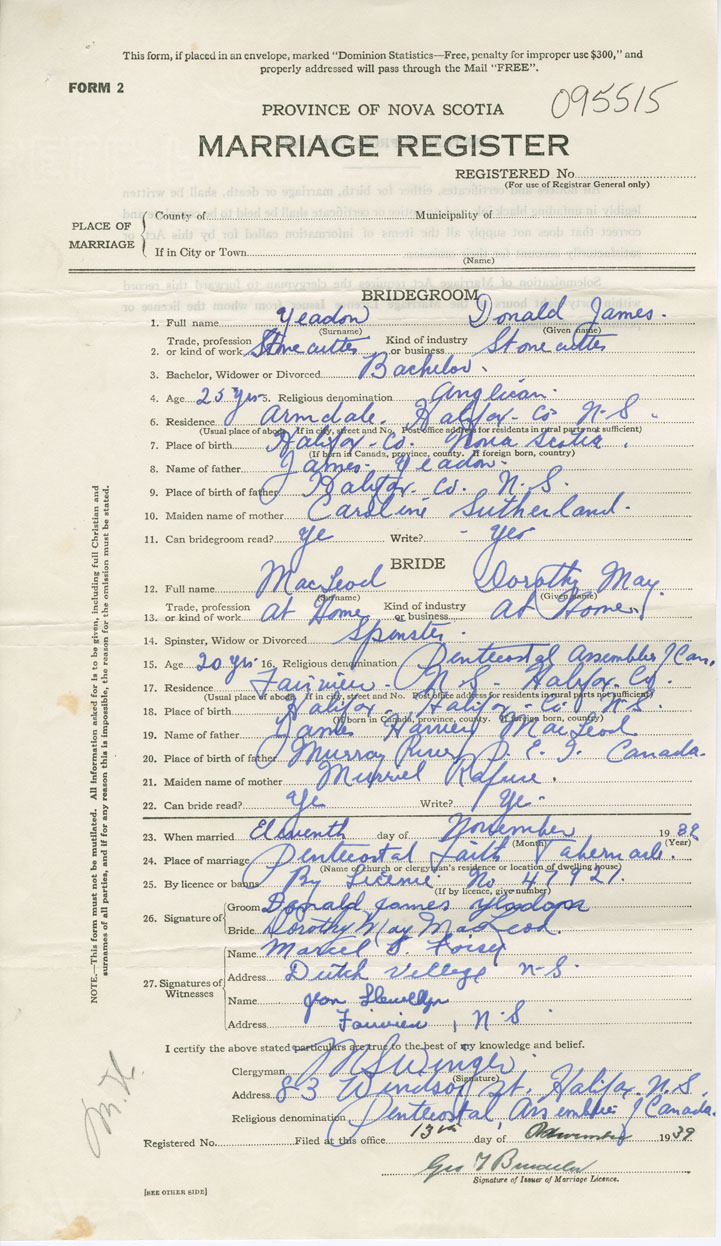 This form, if placed in an envelope, marked "Dominion Statistics—Free, penalty for improper use $300," and
properly addressed will pass through the Mail "FREE".
FORM 2
095515
PROVINCE OF NOVA SCOTIA
MARRIAGE REGISTER
REGISTERED No.
(For use of Registrar General only)
PLACE OF MARRIAGE
County of Municipality of
If in City or Town
(Name)
BRIDEGROOM
1. Full name Yeadon Donald James.
(Surname) (Given name)
2. Trade, profession or kind of work Stone cutter Kind of industry or business Stone cutter
3. Bachelor, Widower or Divorced Bachelor.
4. Age 25 yrs 5. Religious denomination Anglican.
6. Residence Armdale. Halifax Co N-S.
(Usual place of abode. If in city, street and No. Post office address for residents in rural parts not sufficient)
7. Place of birth Halifax-Co. Nova Scotia.
(If born in Canada, province, county. If foreign born, country)
8. Name of father James Yeadon.
9. Place of birth of father Halifax Co. N.S.
10. Maiden name of mother Caroline Sutherland.
11. Can bridegroom read? Ye Write? - Yes
BRIDE
12. Full name MacLeod Dorothy May.
(Surname) (Given name)
13. Trade, profession or kind of work at Home Kind of industry or business at Home
14. Spinster, Widow or Divorced Spinster.
15. Age 20 yrs 16. Religious denomination Pentecostal Assemblies of Can.
17. Residence Fairview-N-S-Halifax. Co.
(Usual place of abode. If in city, street and No. Post office address for residents in rural parts not sufficient)
18. Place of birth Halifax. Halifax-Co. N-S.
(If born in Canada, province, county. If foreign born, country)
19. Name of father James Harvey MacLeod
20. Place of birth of father Murray River P. E. I. Canada.
21. Maiden name of mother Murriel Rafuse.
22. Can bride read? Ye Write? Ye.
23. When married Eleventh day of November 19
(Month) (Year)
24. Place of marriage Pentecostal Faith Tabernacle.
(Name of church or clergyman's residence or location of dwelling house)
25. By licence or banns By License. No 47921.
(If by licence, give number)
26. Signature of
Groom Donald James Yeadon
Bride Dorothy May MacLeod.
27. Signatures of Witnesses
Name
Address Dutch Village N-S.
Name Llewellyn
Address Fairview, N-S.
I certify the above stated particulars are true to the best of my knowledge and belief.
Clergyman Winger.
(Signature)
Address 83 Windsor St. Halifax. N.S.
Religious denomination Pentecostal Assemblies of Canada.
Registered No. Filed at this office 13th day of November 1939
Geo
Signature of Issuer of Marriage Licence.
[SEE OTHER SIDE]
NOTE.—This form must not be mutilated. All information asked for is to be given, including full Christian and
surnames of all parties, and if for any reason this is impossible, the reason for the omission must be stated.